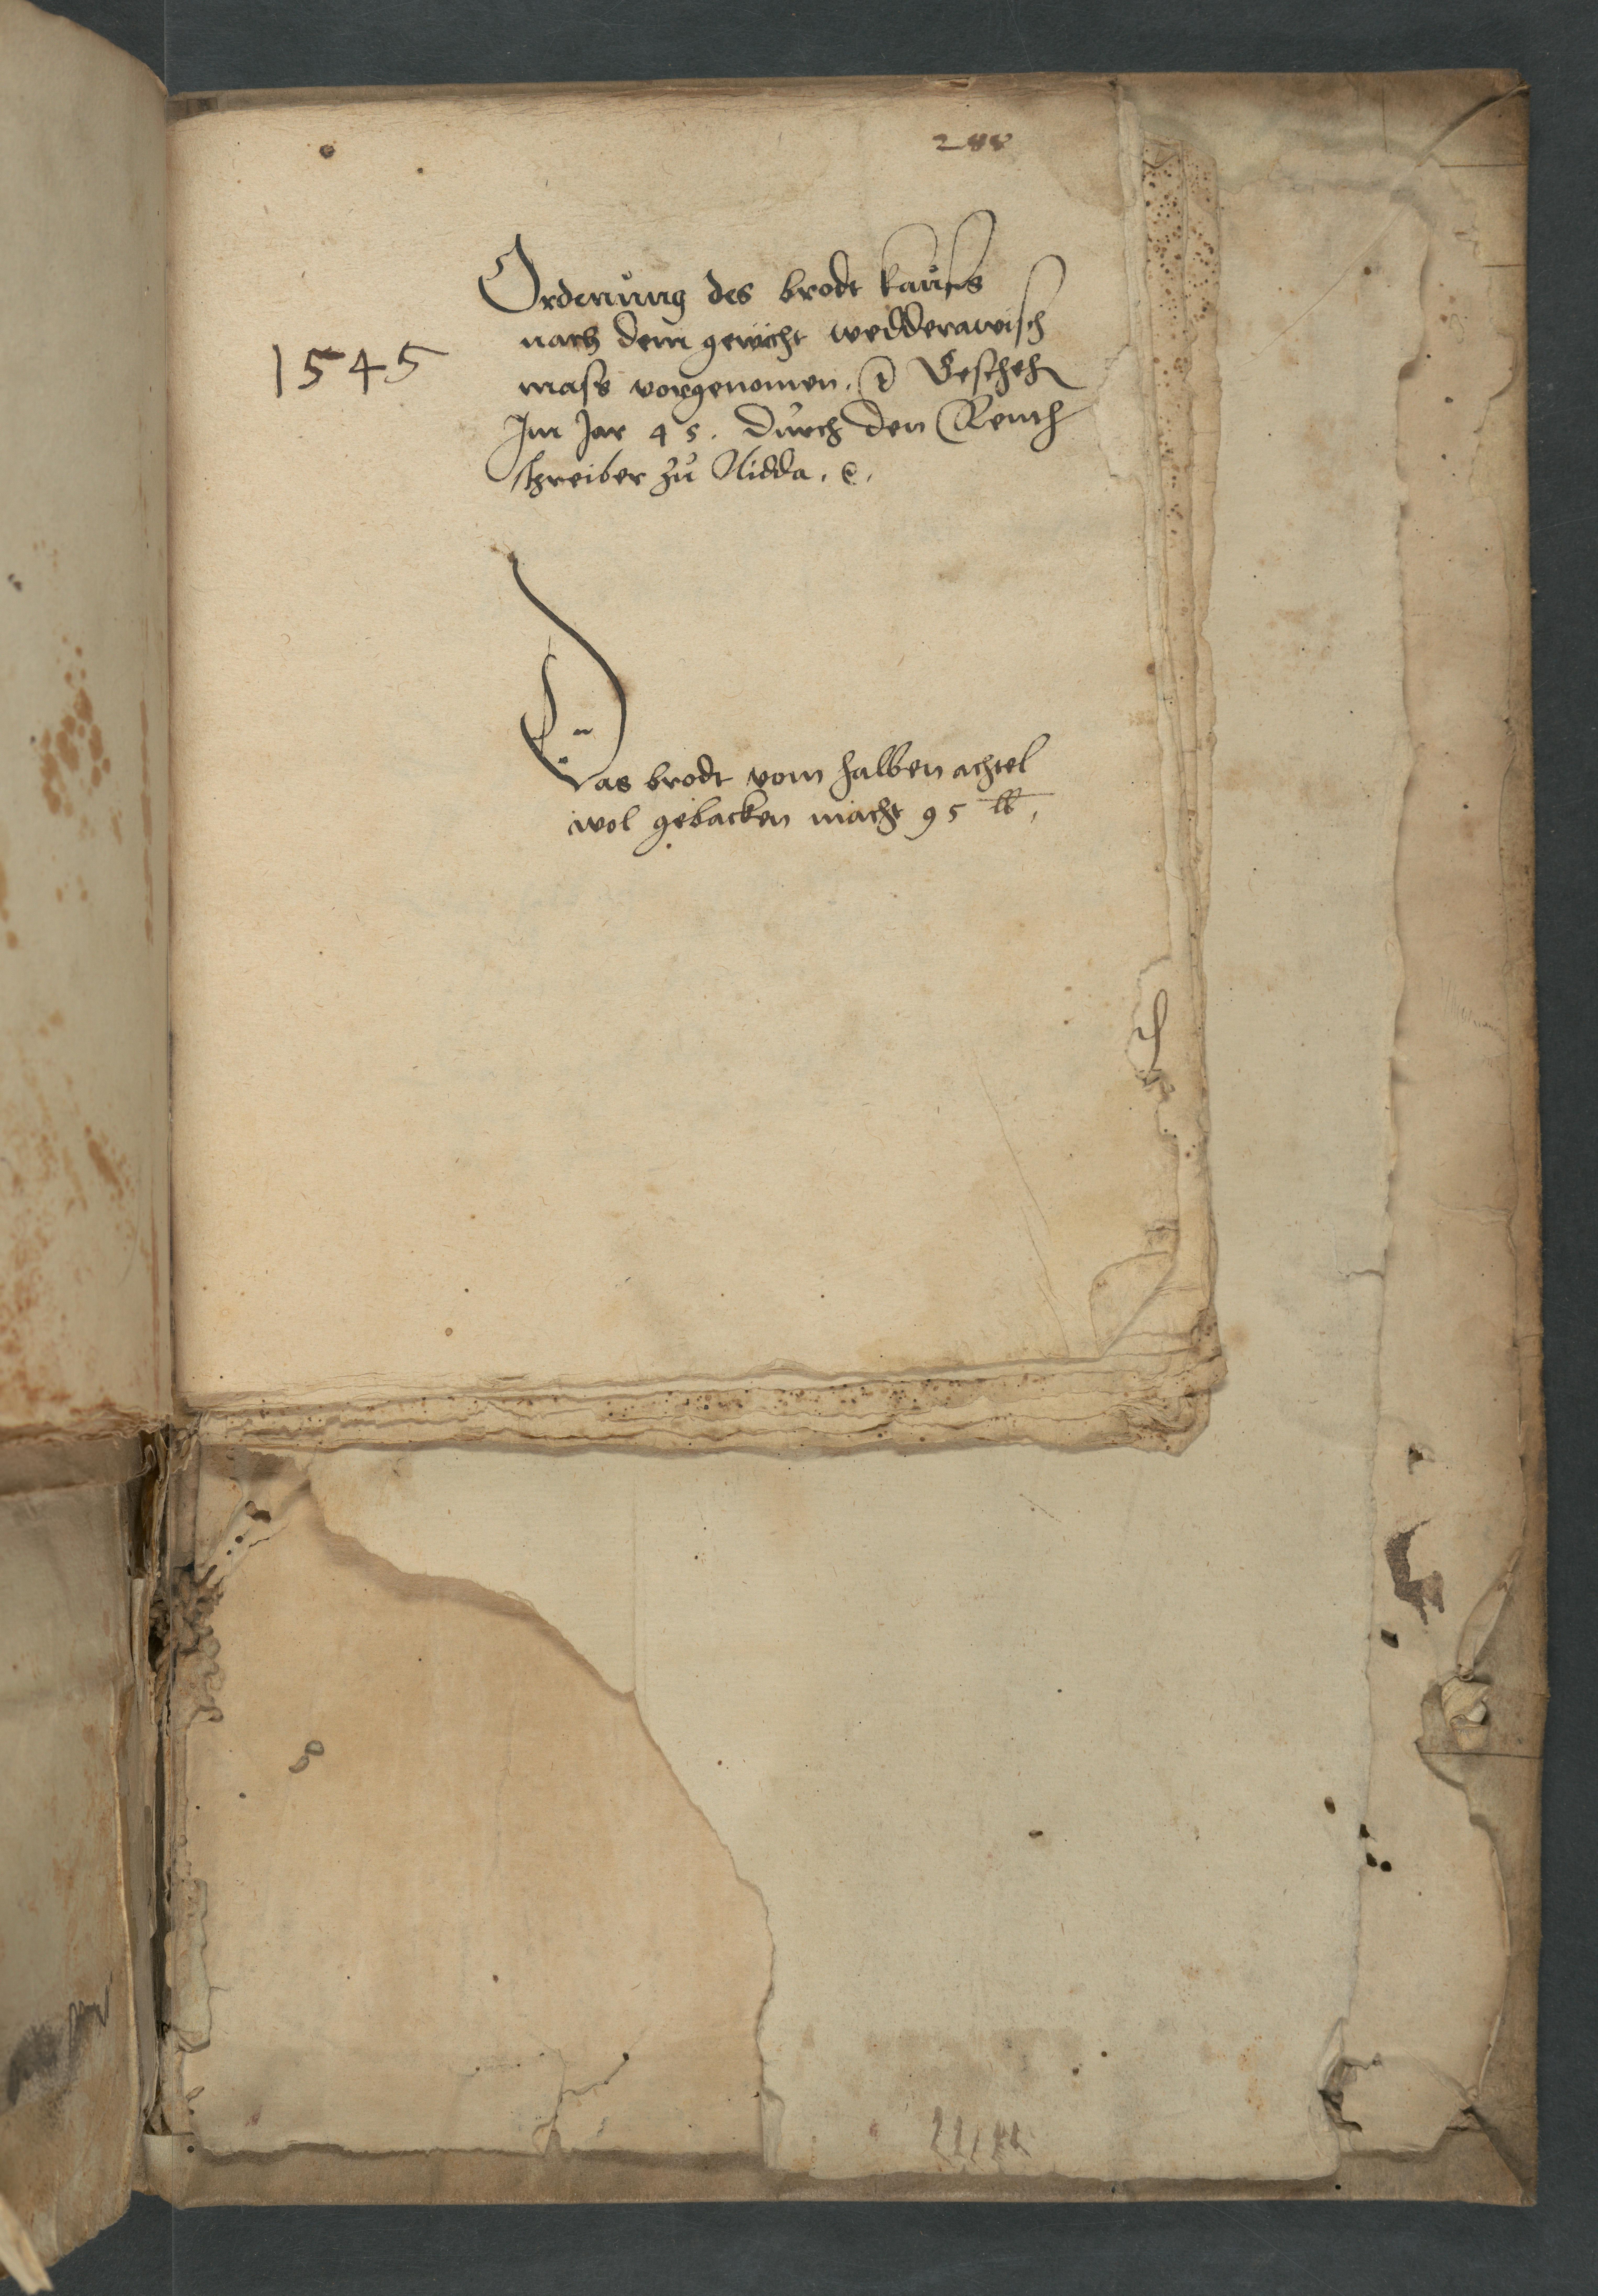 288
Ordenung des brodt kaufs
nach dem gewicht wedderawisch
1545
mass vorgenomen. Gescheh
Im Jar 45. durch den Rent
schreiber zu Nidda. c.
Das brodt vom halben achtel
wol gebacken macht 95 lb,